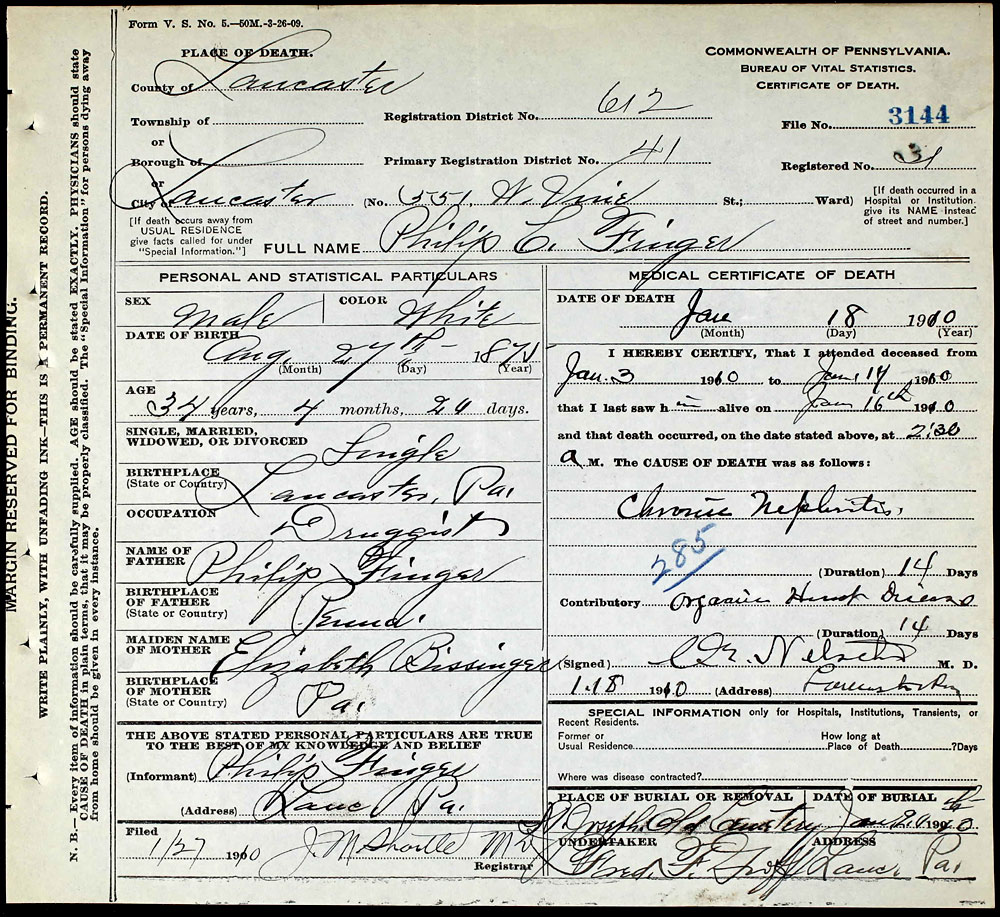 Form V. S. No. 5.—50M.-3-26-09.
PLACE OF DEATH.
County of Lancaster
Township of
or
Borough of
or
City of Lancaster
[If death occurs away from
USUAL RESIDENCE
give facts called for under
"Special Information."]
Registration District No. 612
Primary Registration District No. 41
(No. 551. W. Vine St.; Ward)
FULL NAME Philip C. Finger
COMMONWEALTH OF PENNSYLVANIA.
BUREAU OF VITAL STATISTICS.
CERTIFICATE OF DEATH.
File No. 3144
Registered No. 31
[If death occurred in a
Hospital or Institution
give its NAME instead
of street and number.]
MARGIN RESERVED FOR BINDING.
WRITE PLAINLY, WITH UNFADING INK—THIS IS A PERMANENT RECORD.
N. B.—Every item of information should be carefully supplied. AGE should be stated EXACTLY. PHYSICIANS should state
CAUSE OF DEATH in plain terms, that it may be properly classified. The "Special Information" for persons dying away
from home should be given in every instance.
PERSONAL AND STATISTICAL PARTICULARS
SEX Male COLOR White
DATE OF BIRTH Aug 27th 187
(Month) (Day) (Year)
AGE
34 years, 4 months, days.
SINGLE, MARRIED,
WIDOWED, OR DIVORCED Single
BIRTHPLACE
(State or Country) Lancaster, Pa.
OCCUPATION Druggist
NAME OF
FATHER Philip Finger
BIRTHPLACE
OF FATHER
(State or Country) Penna.
MAIDEN NAME
OF MOTHER Elizabeth Bissinger
BIRTHPLACE
OF MOTHER
(State or Country) Pa.
THE ABOVE STATED PERSONAL PARTICULARS ARE TRUE
TO THE BEST OF MY KNOWLEDGE AND BELIEF
(Informant) Philip Finger
(Address) Lanc Pa.
Filed
1/27 1910 J. M. Shartle M D
Registrar
MEDICAL CERTIFICATE OF DEATH
DATE OF DEATH
Jan 18 1910
(Month) (Day) (Year)
I HEREBY CERTIFY, That I attended deceased from
Jan. 3 1910 to Jan. 1910
that I last saw h im alive on Jan 16th 1910
and that death occurred, on the date stated above, at 2:30
a M. The CAUSE OF DEATH was as follows:
Chronic Nephritis.
285
(Duration) 14 Days
Contributory Organic Heart Disease
(Duration) 14 Days
(Signed) M. D.
1.18 1910 (Address)
SPECIAL INFORMATION only for Hospitals, Institutions, Transients, or
Recent Residents.
Former or
Usual Residence
How long at
Place of Death ?Days
Where was disease contracted?
PLACE OF BURIAL OR REMOVAL DATE OF BURIAL
St Joseph Cemetery Jan 1910
UNDERTAKER ADDRESS
Fred. F. Groff Lanc. Pa.